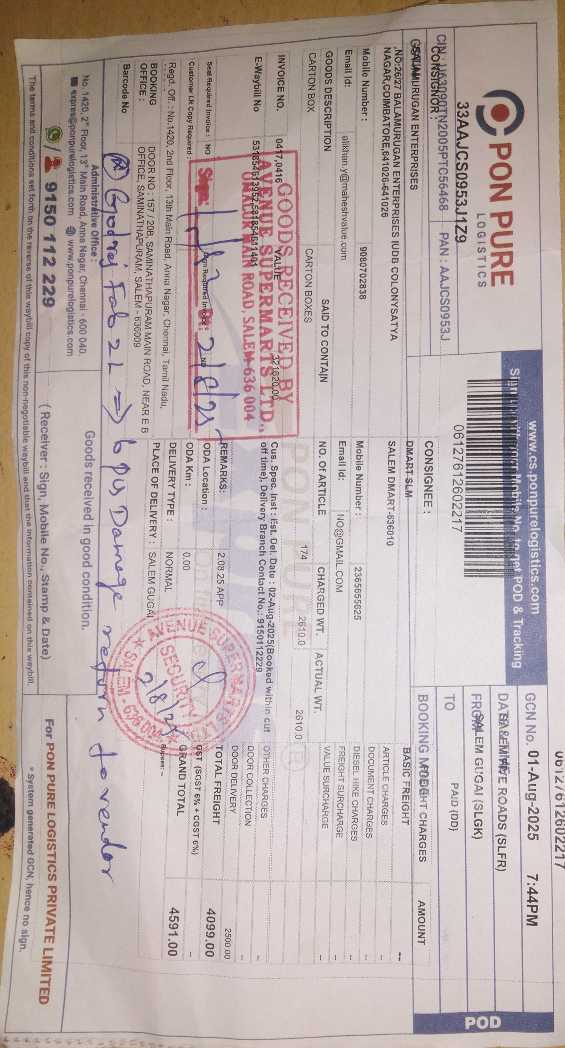 06127612602217
PON PURE
LOGISTICS
33AAJCS0953J1Z9
CIN U63090TN2005PTC56468 PAN : AAJCS0953J
www.cs.ponpurelogistics.com
06127612602217
GCN No. 01-Aug-2025 7:44PM
POD
FROM SALEM GUGAI (SLGK)
TO PAID (DD)
CONSIGNOR :
BALAMURUGAN ENTERPRISES
NO:26/27 BALAMURUGAN ENTERPRISES IUDB COLONYSATYA
NAGAR,COIMBATORE,641026-641026
Mobile Number : 9080702838
Email Id:
CONSIGNEE :
DMART-SLM
SALEM DMART-636010
Mobile Number : 2365655625
Email Id: NO@GMAIL.COM
GOODS DESCRIPTION SAID TO CONTAIN NO. OF ARTICLE CHARGED WT. ACTUAL WT.
CARTON BOX CARTON BOXES 174 2610.0 2610.0
INVOICE NO. 0417,0416 VALUE 321620.00
E-Waybill No
Cus. Spec. Inst : Est. Del. Date : 02-Aug-2025(Booked within cut
off time), Delivery Branch Contact No.: 9150112229
Seal Required Invoice : NO
Customer LR Copy Required :
REMARKS: 2.08.25 APP
ODA Location : --
ODA Km : 0.00
DELIVERY TYPE : NORMAL
PLACE OF DELIVERY : SALEM GUGAI
Regd. Off. : No.1420, 2nd Floor, 13th Main Road, Anna Nagar, Chennai, Tamil Nadu,
BOOKING OFFICE : DOOR NO : 157 / 20B, SAMINATHAPURAM MAIN ROAD, NEAR E B
OFFICE, SAMINATHAPURAM, SALEM - 636009
Barcode No
AMOUNT
BASIC FREIGHT --
ARTICLE CHARGES --
DOCUMENT CHARGES --
DIESEL HIKE CHARGES --
FREIGHT SURCHARGE --
VALUE SURCHARGE --
OTHER CHARGES --
DOOR COLLECTION --
DOOR DELIVERY 2500.00
TOTAL FREIGHT 4099.00
GST (SGST 6% + CGST 6%) --
GRAND TOTAL 4591.00
GOODS RECEIVED BY
AVENUE SUPERMARTS LTD.,
MAIN ROAD, SALEM-636 004
Sign:
Dt: 2/8/25
AVENUE SUPERMARTS
SECURITY
2/8/25
SALEM - 636 004
Godrej Fab 2L => 6 pcs Damage return to vendor
Goods received in good condition.
Administrative Office :
No. 1420, 2nd Floor, 13th Main Road, Anna Nagar, Chennai - 600 040.
expres@ponpurelogistics.com www.ponpurelogistics.com
9150 112 229
( Receiver : Sign, Mobile No., Stamp & Date)
For PON PURE LOGISTICS PRIVATE LIMITED
* System generated GCN, hence no sign.
The terms and conditions set form on the reverse of this waybill copy of this non-negotiable waybill and that the information contained on this waybill.